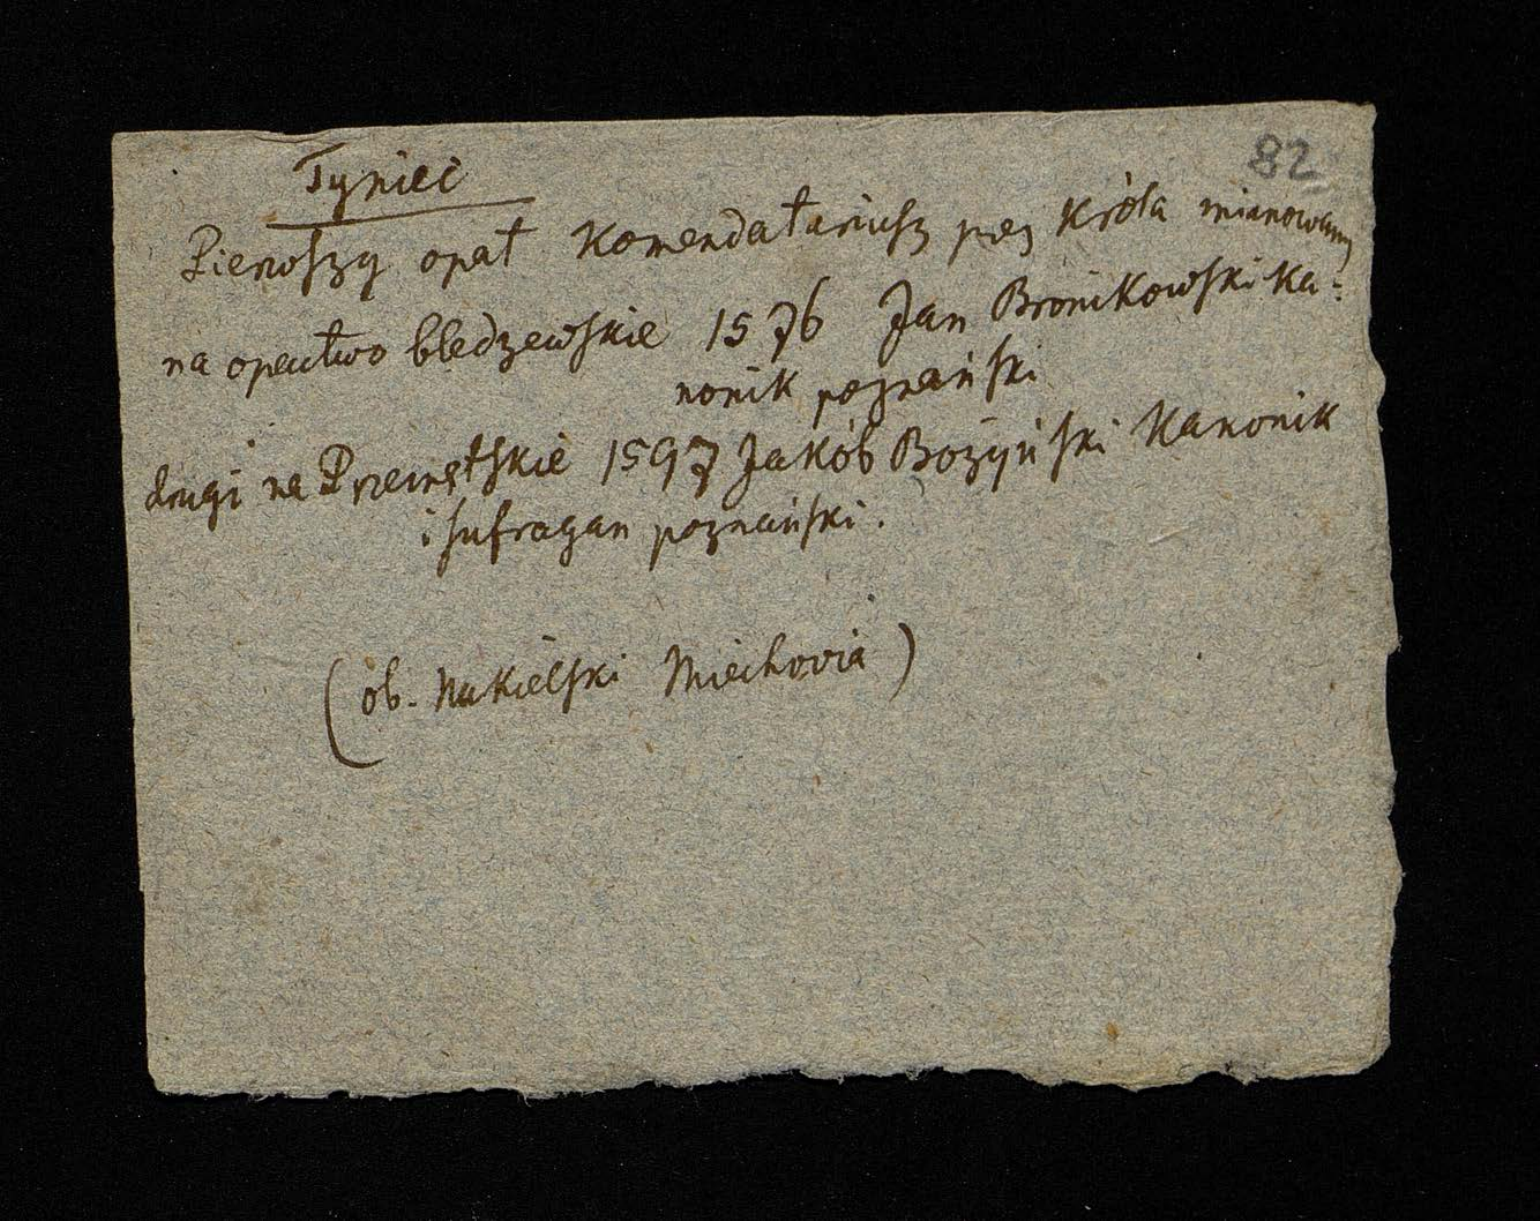 82
Tyniec
Pierwszy opat Komendatariusz przez Króla mianowany
na opactwo bledzewskie 1576 Jan Bronikowski Ka:
nonik poznański
drugi na Przemętskie 1597 Jakób Bożyński Kanonik
i sufragan poznański.
(ob. Nakielski Miechovia)